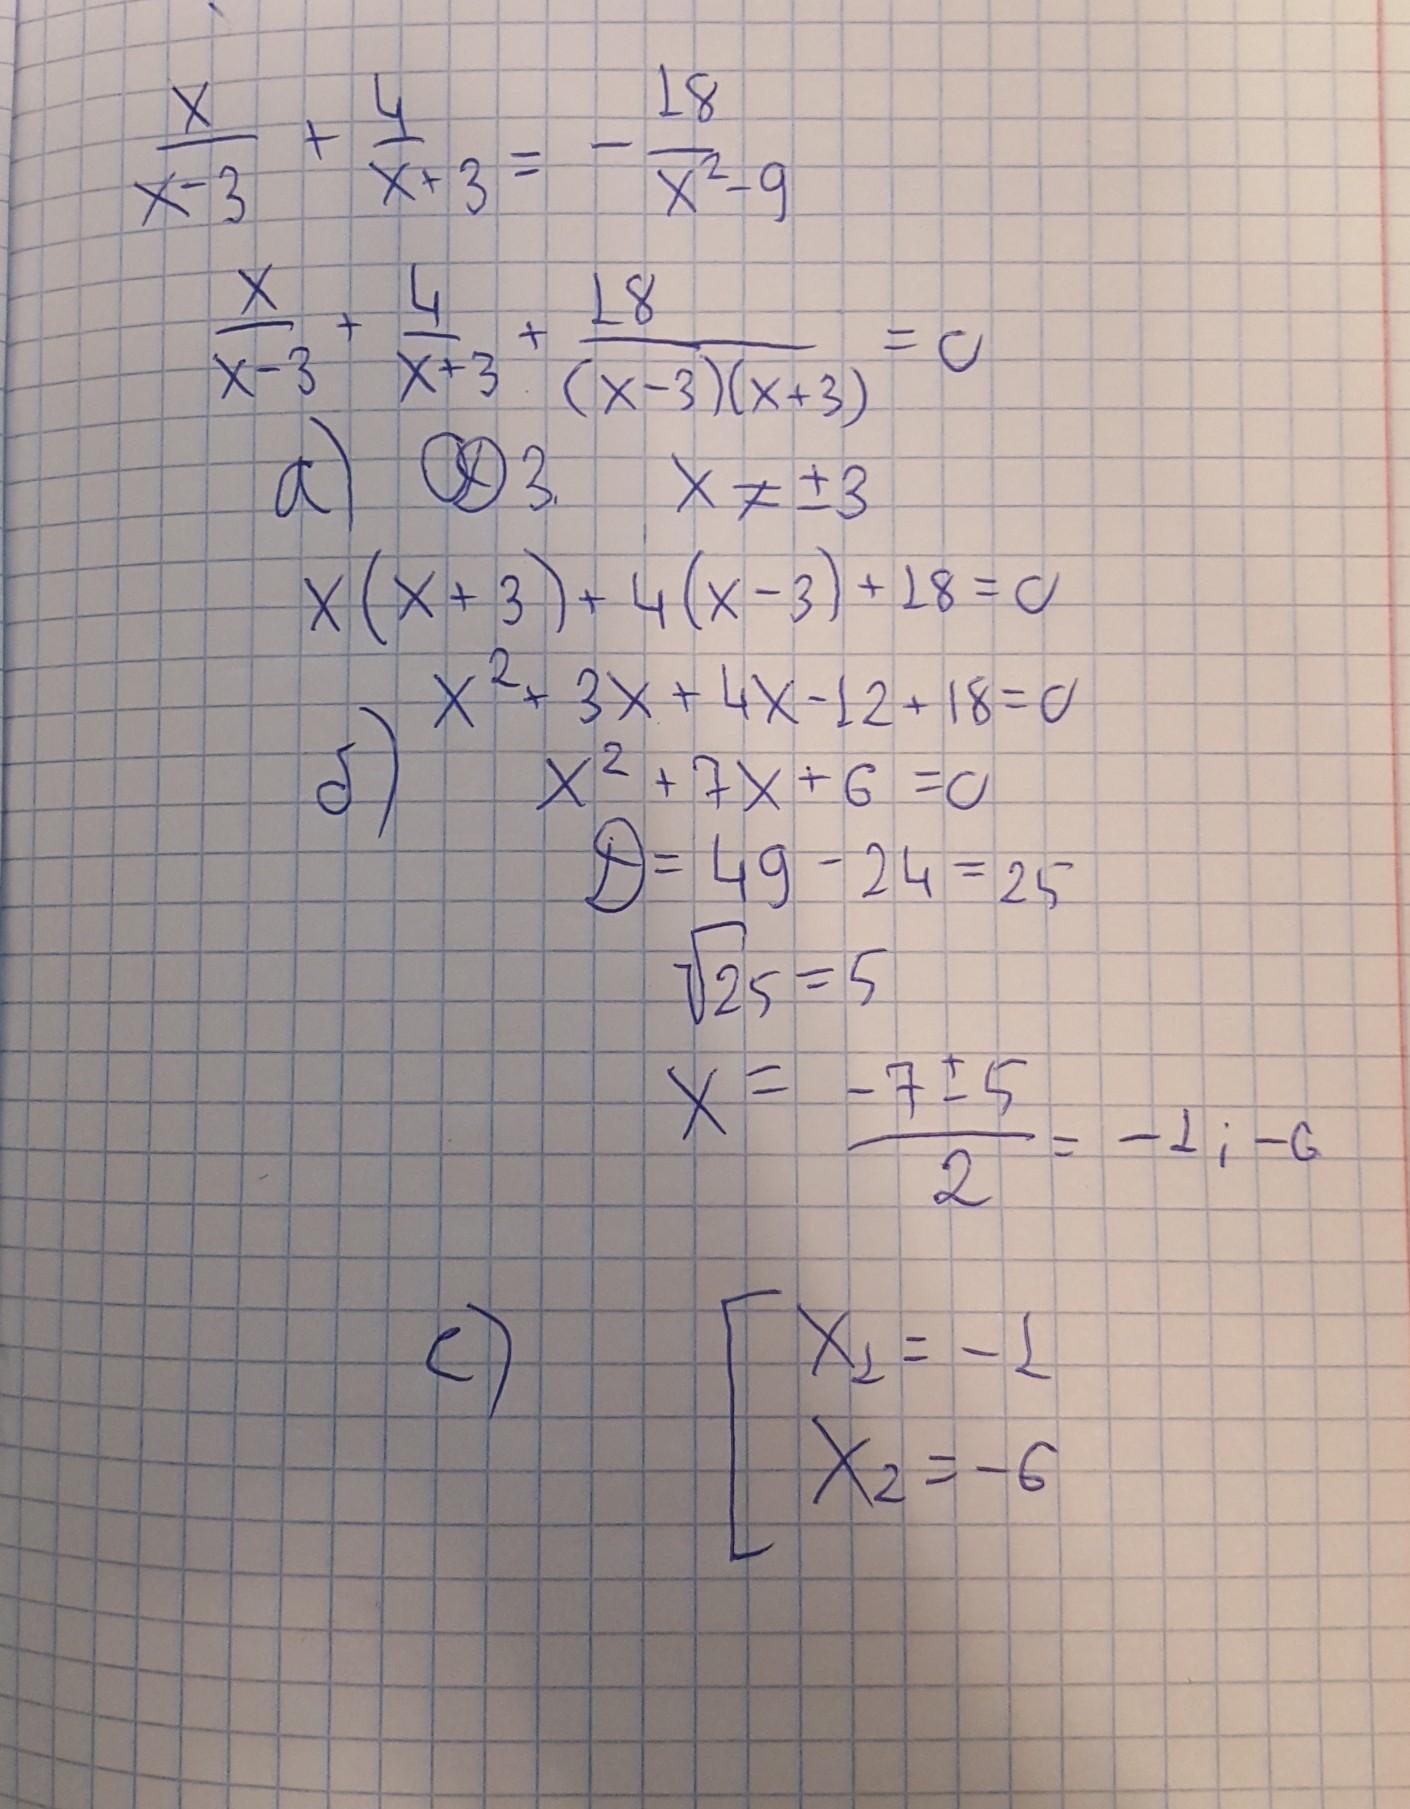 x/(x-3) + 4/(x+3) = - 18/(x²-9)
x/(x-3) + 4/(x+3) + 18/((x-3)(x+3)) = 0
а) 3. x ≠ ±3
x(x+3)+4(x-3)+18=0
x²+3x+4x-12+18=0
б) x²+7x+6=0
D=49-24=25
√25=5
x = (-7±5)/2 = -1; -6
с) [ x₁=-1
x₂=-6